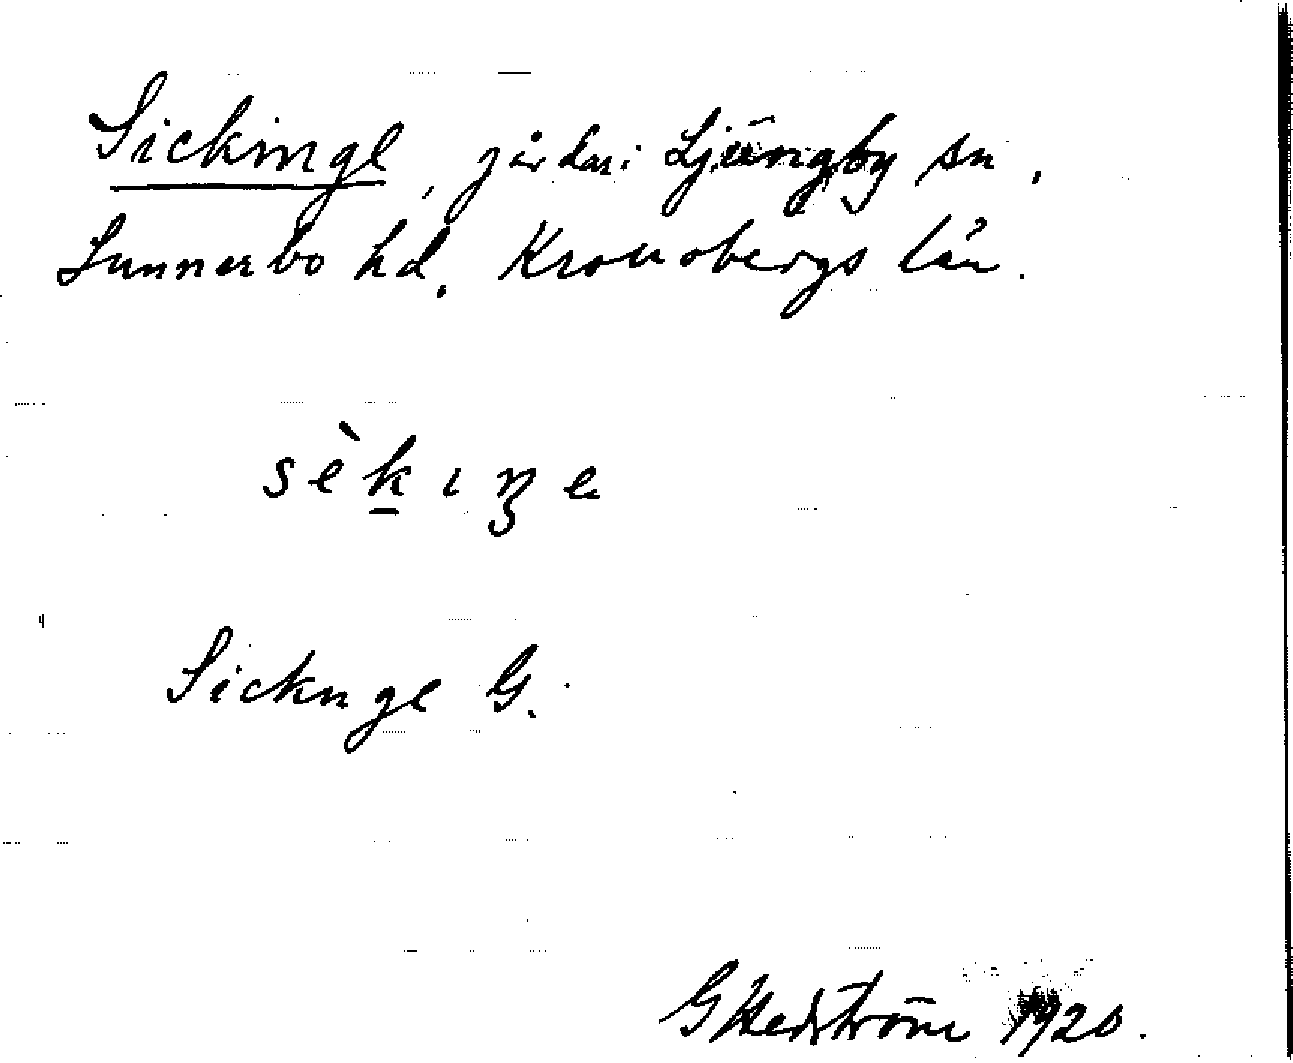 Sickinge, gård i Ljungby sn,
Sunnerbo hd, Kronobergs län.
sèkıŋe
Sickinge G.
G Hedström 1920.